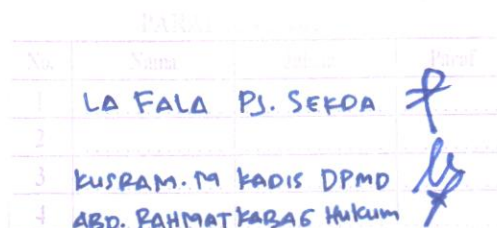 No. Nama Paraf
1 LA FALA PJ. SEKDA
2
3 KUSRAM. M KADIS DPMD
4 ABD. RAHMAT KABAG HUKUM